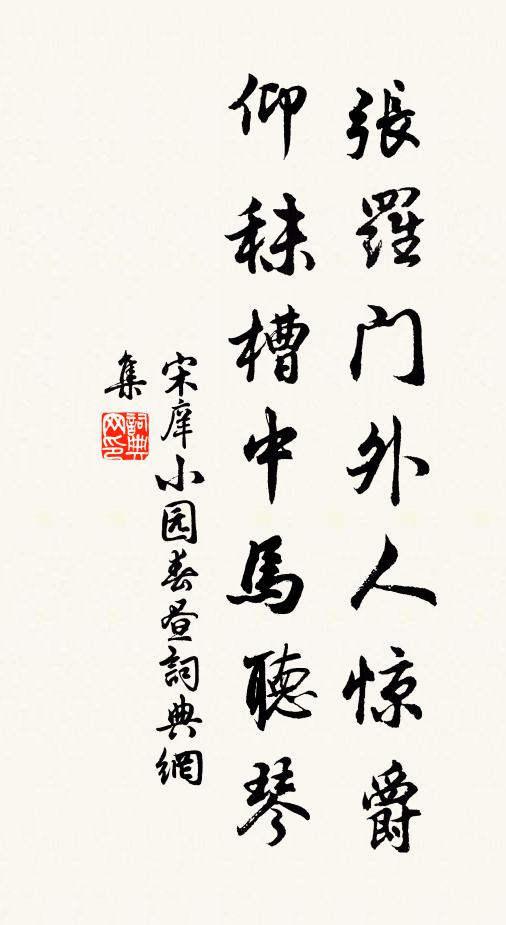 張羅門外人惊爵
仰秣槽中馬聽琴
宋庠小园春昼詞典網
集
詞典
网印